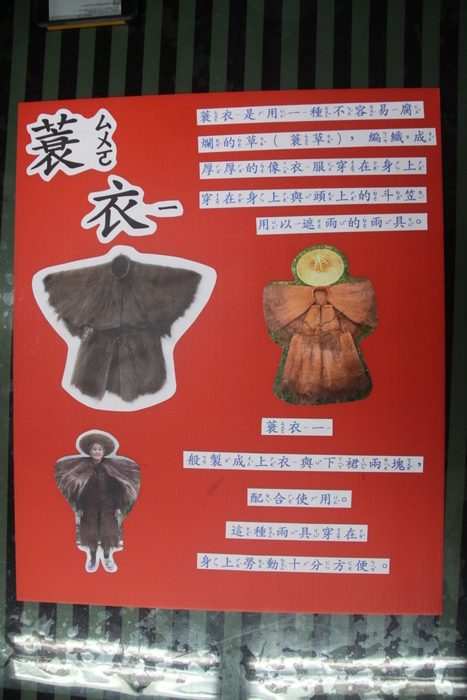 蓑ㄙㄨㄛ
衣ㄧ
蓑衣是用一種不容易腐
爛的草(蓑草),編織成
厚厚的像衣服穿在身上
穿在身上與頭上的斗笠
用以遮雨的雨具。
蓑衣一
般製成上衣與下裙兩塊,
配合使用。
這種雨具穿在
身上勞動十分方便。